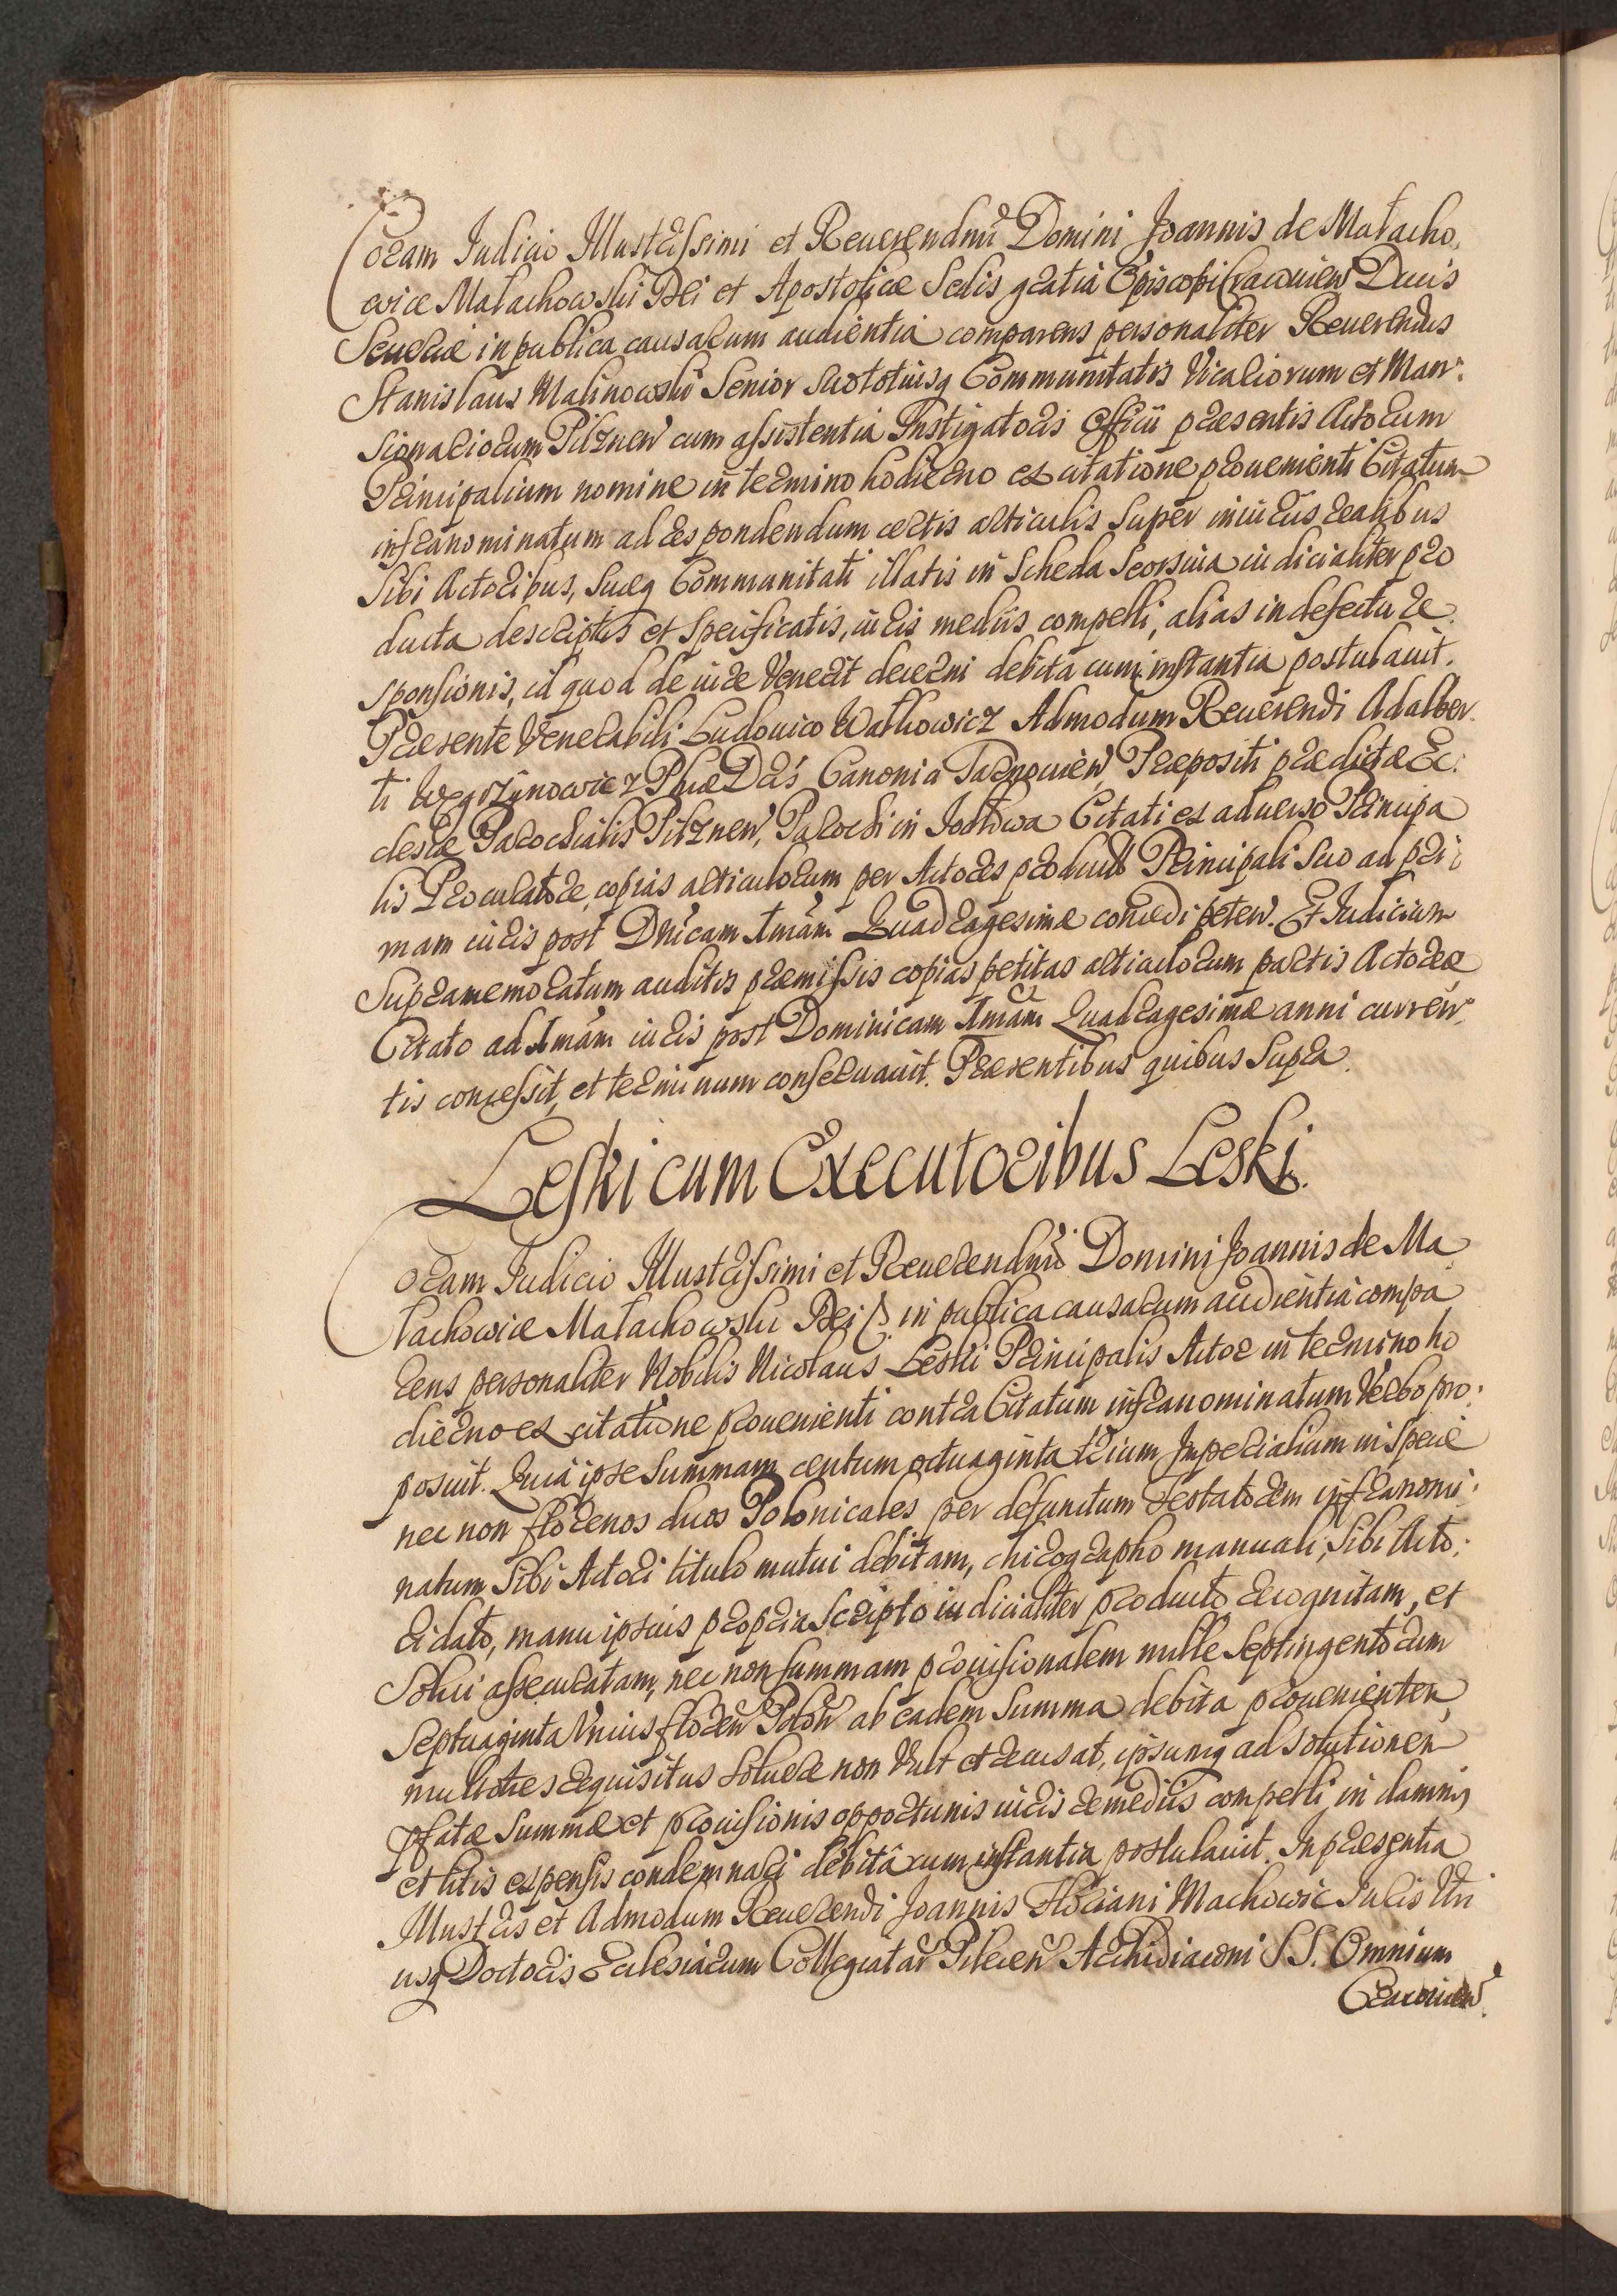 Coram Iudicio Illustrissimi et Reuerendmi Domini Joannis de Małacho
wice Małachowski Dei et Apostolicæ Sedis gratia Episcopi Cracouien Ducis
Seueriæ in publica causarum audientia comparens personaliter Reuerendus
Stanislaus Malinowski Senior suo totiusq Communitatis Vicariorum et Man
sionariorum Pilznen cum assistentia Instigatoris Officii præsentis Actorum
Principalium nomine in termino hodierno ex citatione prouenienti Citatum
infranominatum ad respondendum certis articulis super iniuriis realibus
sibi Actoribus, suæq Communitati illatis in Scheda seorsiua iudicialiter pro
ducta descriptis et specificatis, iuris mediis compelli, alias in defectu re
sponsionis, id quod de iure venerit decerni debita cum instantia postulauit.
Præsente Venerabili Ludouico Wałkowicz Admodum Reuerendi Adalber
ti Węgrzynowicz Phiæ Dris Canonici Tarnouien, Præpositi prædictæ Ec
clesiæ Parochialis Pilznen, Parochi in Jodłowa Citati ex aduerso Principa
lis Procuratore, copias articulorum per Actores product Principali suo ad pri
mam iuris post Dnicam Imam Quadragesimæ concedi peten. Et Iudicium
supramemoratum auditis præmissis copias petitas articulorum partis Actoreæ
Citato ad Imam iuris post Dominicam Imam Quadragesimæ anni curren
tis concessit, et terminum conseruauit. Præsentibus quibus supra.
Leski cum Executoribus Leski.
Coram Iudicio Illustrissimi et Reuerendmi Domini Joannis de Ma
łachowice Małachowski Dei P. in publica causarum audientia compa
rens personaliter Nobilis Nicolaus Leski Principalis Actor in termino ho
dierno ex citatione prouenienti contra Citatum infranominatum verbo pro
posuit. Quia ipse summam centum octuaginta trium Imperialium in specie
nec non florenos duos Polonicales per defunctum Testatorem infranomi
natum sibi Actori titulo mutui debitam, chirographo manuali, sibi Acto
ri dato, manu ipsius propria scripto iudicialiter producto recognitam, et
solui assecuratam, nec non summam prouisionalem mille septingentorum
septuaginta vnius floren Polon ab eadem summa debita prouenienten
multoties requisitus soluere non vult et recusat, ipsumq ad solutionem
pfatæ summæ et prouisionis opportunis iuris remediis compelli in damnis
et litis expensis condemnari debita cum instantia postulauit. In præsentia
Illustris et Admodum Reuerendi Joannis Floriani Machowic Iuris Utri
usq Doctoris Ecclesiarum Collegiatar Pilecen Archidiaconi S.S. Omnium
Cracouien